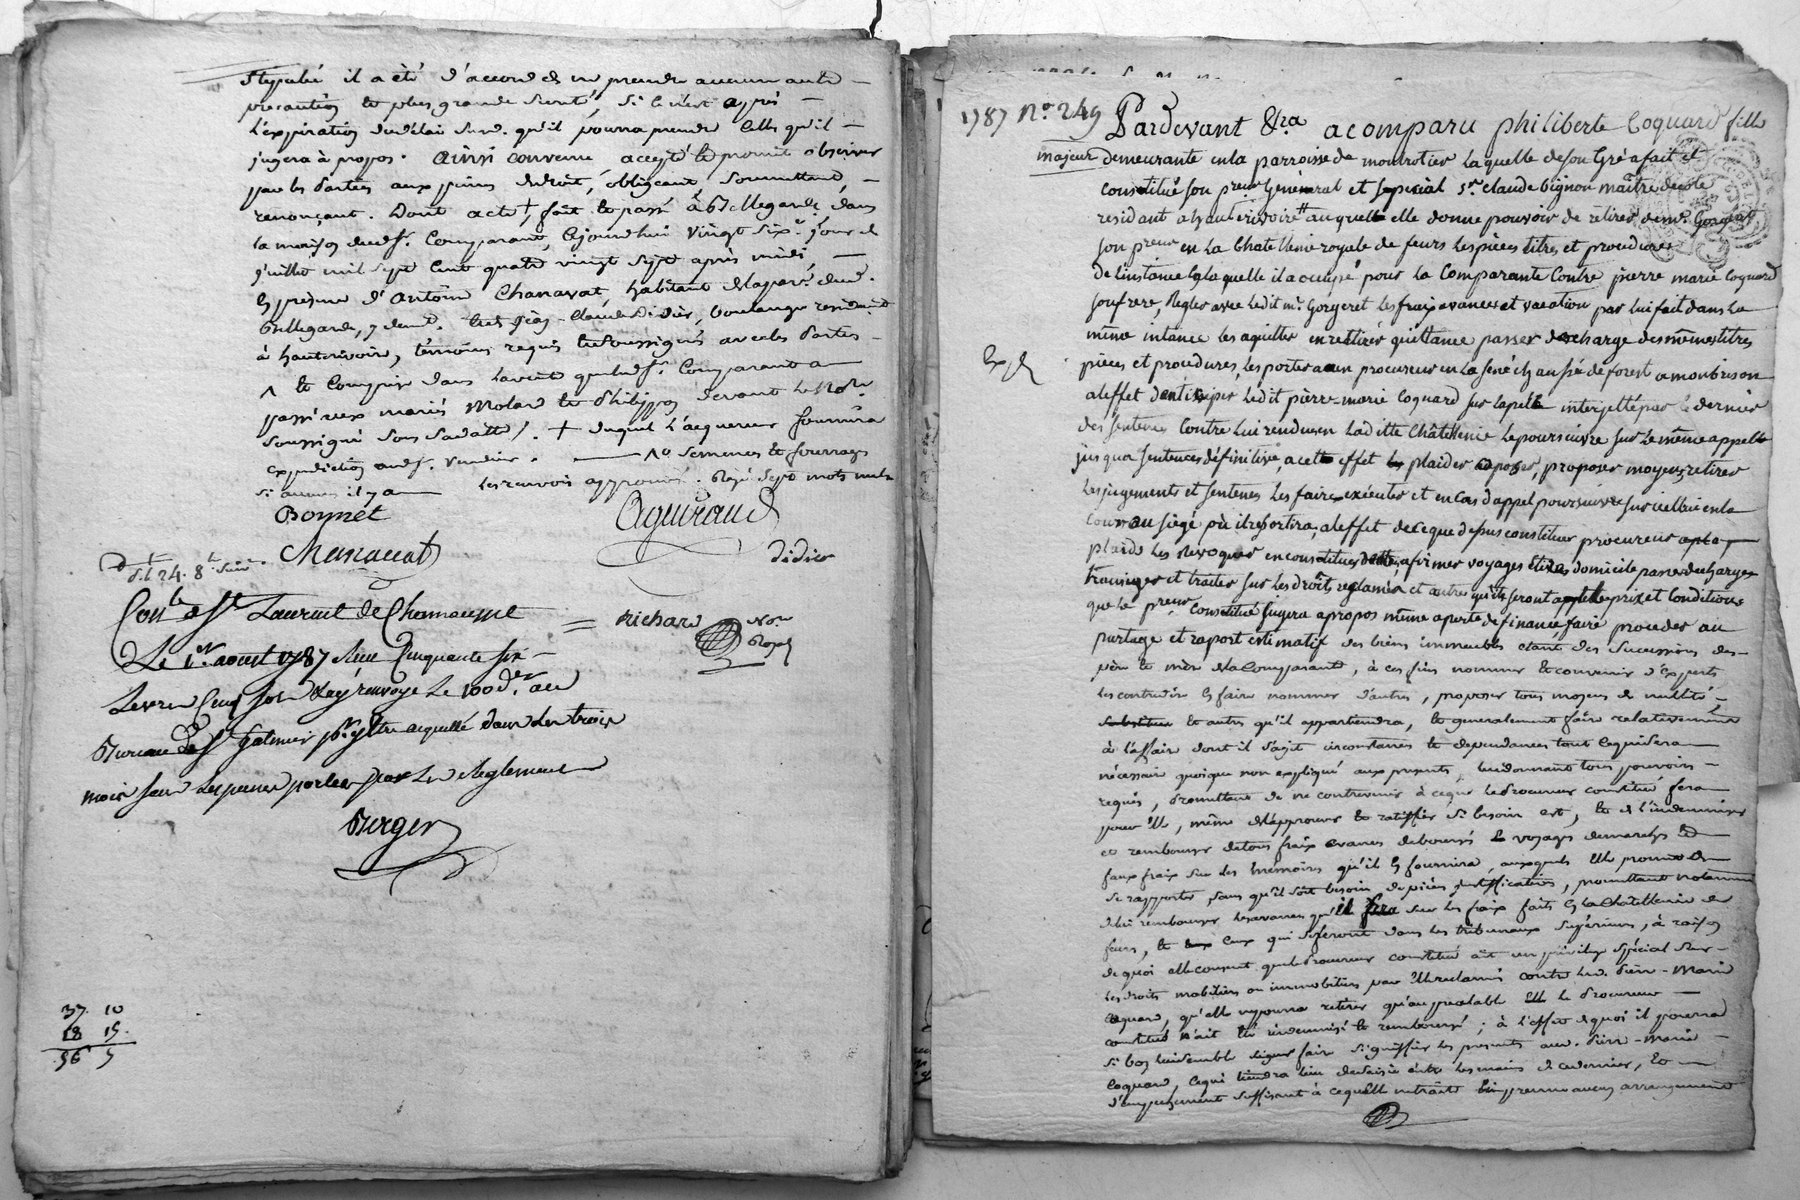 stipulé il a été d'accord de ne prendre aucun autre
precaution et plus grande sureté, si ce n'est après
l'expiration du délai susd. qu'il pourra prendre celles qu'il
jugera à propos. ainsi convenu accepté et promit observer
par les parties aux peines de droit, obligeant, soumettant,
renonçant. Dont acte +, fait et passé à Bellegarde dans
la maison dudt. Comparant, cejourd'hui vingt six.e jour de
juillet mil sept cent quatre vingt sept après midi,
en présence d'antoine Chanavat, habitant de la parr.e dud.
Bellegarde, y demt. et de Jean-Claude Didier, boulanger résidant
à hauterivoire, témoins requis et soussignés avec les parties
^ et compris dans la vente que ledt. Comparant a
passé aux mariés Molard et Philippon devant le Nore
soussigné sous sa datte /. + duquel l'acquereur fournira
expedition audt. vendeur. no semences et fourrages
si aucuns il y a les renvois approuvés. Rayé sept mots nuls
Bonnet Aguiraud
Chanavat didier
d.t 24. 8.t
Conlé a St Laurent de Chamousset
Le 1er aoust 1787 Reçu Cinquante six
Livres Cinq sols & ay renvoyé le 100d.er au
Bureau de St galmier pr y etre acquitté dans les trois
mois sous les peines portées par les Reglements
richard Nore Royal
Berger
37. 10
18 15.
56 5
1787 No. 249 Pardevant &ra a comparu philiberte Coquard fille
majeur demeurante en la parroisse de montrotier laquelle de son gré a fait et
constitué son preur Général et special sr. claude bignon maître decole
residant a hauterivoire # auquell elle donne pouvoir de retirer de mr. Gorgeret
son preur en la Chatellenie royale de feurs les pieces titres et procedures
de linstance en laquelle il a occuppé pour la Comparante Contre pierre marie Coquard
son frere, Regler avec ledit mr. Gorgeret les fraix avances et vacation par lui fait dans la
même intance les aquitter en retirer quittance passer descharge des mêmes titres
Exp.dt pieces et procedures, les porter a un procureur en la sénéchaussée de forest a montbrison
a leffet dantisiper ledit pierre-marie Coquard sur lapell interjetté par le dernier
des sentences Contre Lui rendues en La ditte Châtellenie le poursuivre sur le même appell
jusqua sentences définitive, a cett effet plaider oposer, proposer moyens, retirer
les jugements et sentences les faire exécuter et en cas d'appel poursuivre sur icellui en la
cour ou siége où il resortira, a leffet de ce que dessus constituer procureur
plaids les Revoquer en constituer dottres, afirmer voyages élire domicile passer descharges
transiger et traiter sur les droits reclamés et autres qu'ils seront au telle prix et Conditions
que le preur Constitué jugera a propos même a perte de finance faire proceder au
partage et raport estimatif des biens immeubles étant des Successions des
père et mère de la Comparante, à ces fins nommer et convenir d'experts
les contredire en faire nommer d'autres, proposer tous moyens de nullité
et autres qu'il appartiendra, et generalement faire relativement
à l'affaire dont il s'agit circonstances et dependances tout ce qui sera
nécessaire quoique non expliqué aux presentes, lui donnant tous pouvoirs
requis, promettant de ne contrevenir à ce que le Procureur constitué fera
pour elle, même de l'approuver et ratiffier si besoin est, et de l'indemniser
et rembourser de tous fraix avances deboursés voyages demarches et
faux fraix sur les mémoires qu'il en fournira, auxquels elle promet de
se rapporter, sans qu'il soit besoin de pièces justifficatives, promettant notamment
de lui rembourser les avances qu'il fera sur les fraix faits en la Châtellenie de
feurs, et ceux qui se feront dans les tribunaux supérieurs, à raison
de quoi elle consent que le Procureur constitué ait un privilege spécial sur
les droits mobiliers ou immobiliers par elle reclamés contre led. Pierre-Marie
Coquard, qu'elle ne pourra retirer qu'au prealable le Procureur
constitué n'ait été indemnisé et remboursé; à l'effet de quoi il pourra
si bon lui semble faire signiffier les presentes aud. Pierre-Marie
Coquard, ce qui tiendra lieu de saisie entre les mains de ce dernier, et
d'empechement suffisant à ce qu'elle ne traite ni prenne aucun arrangement